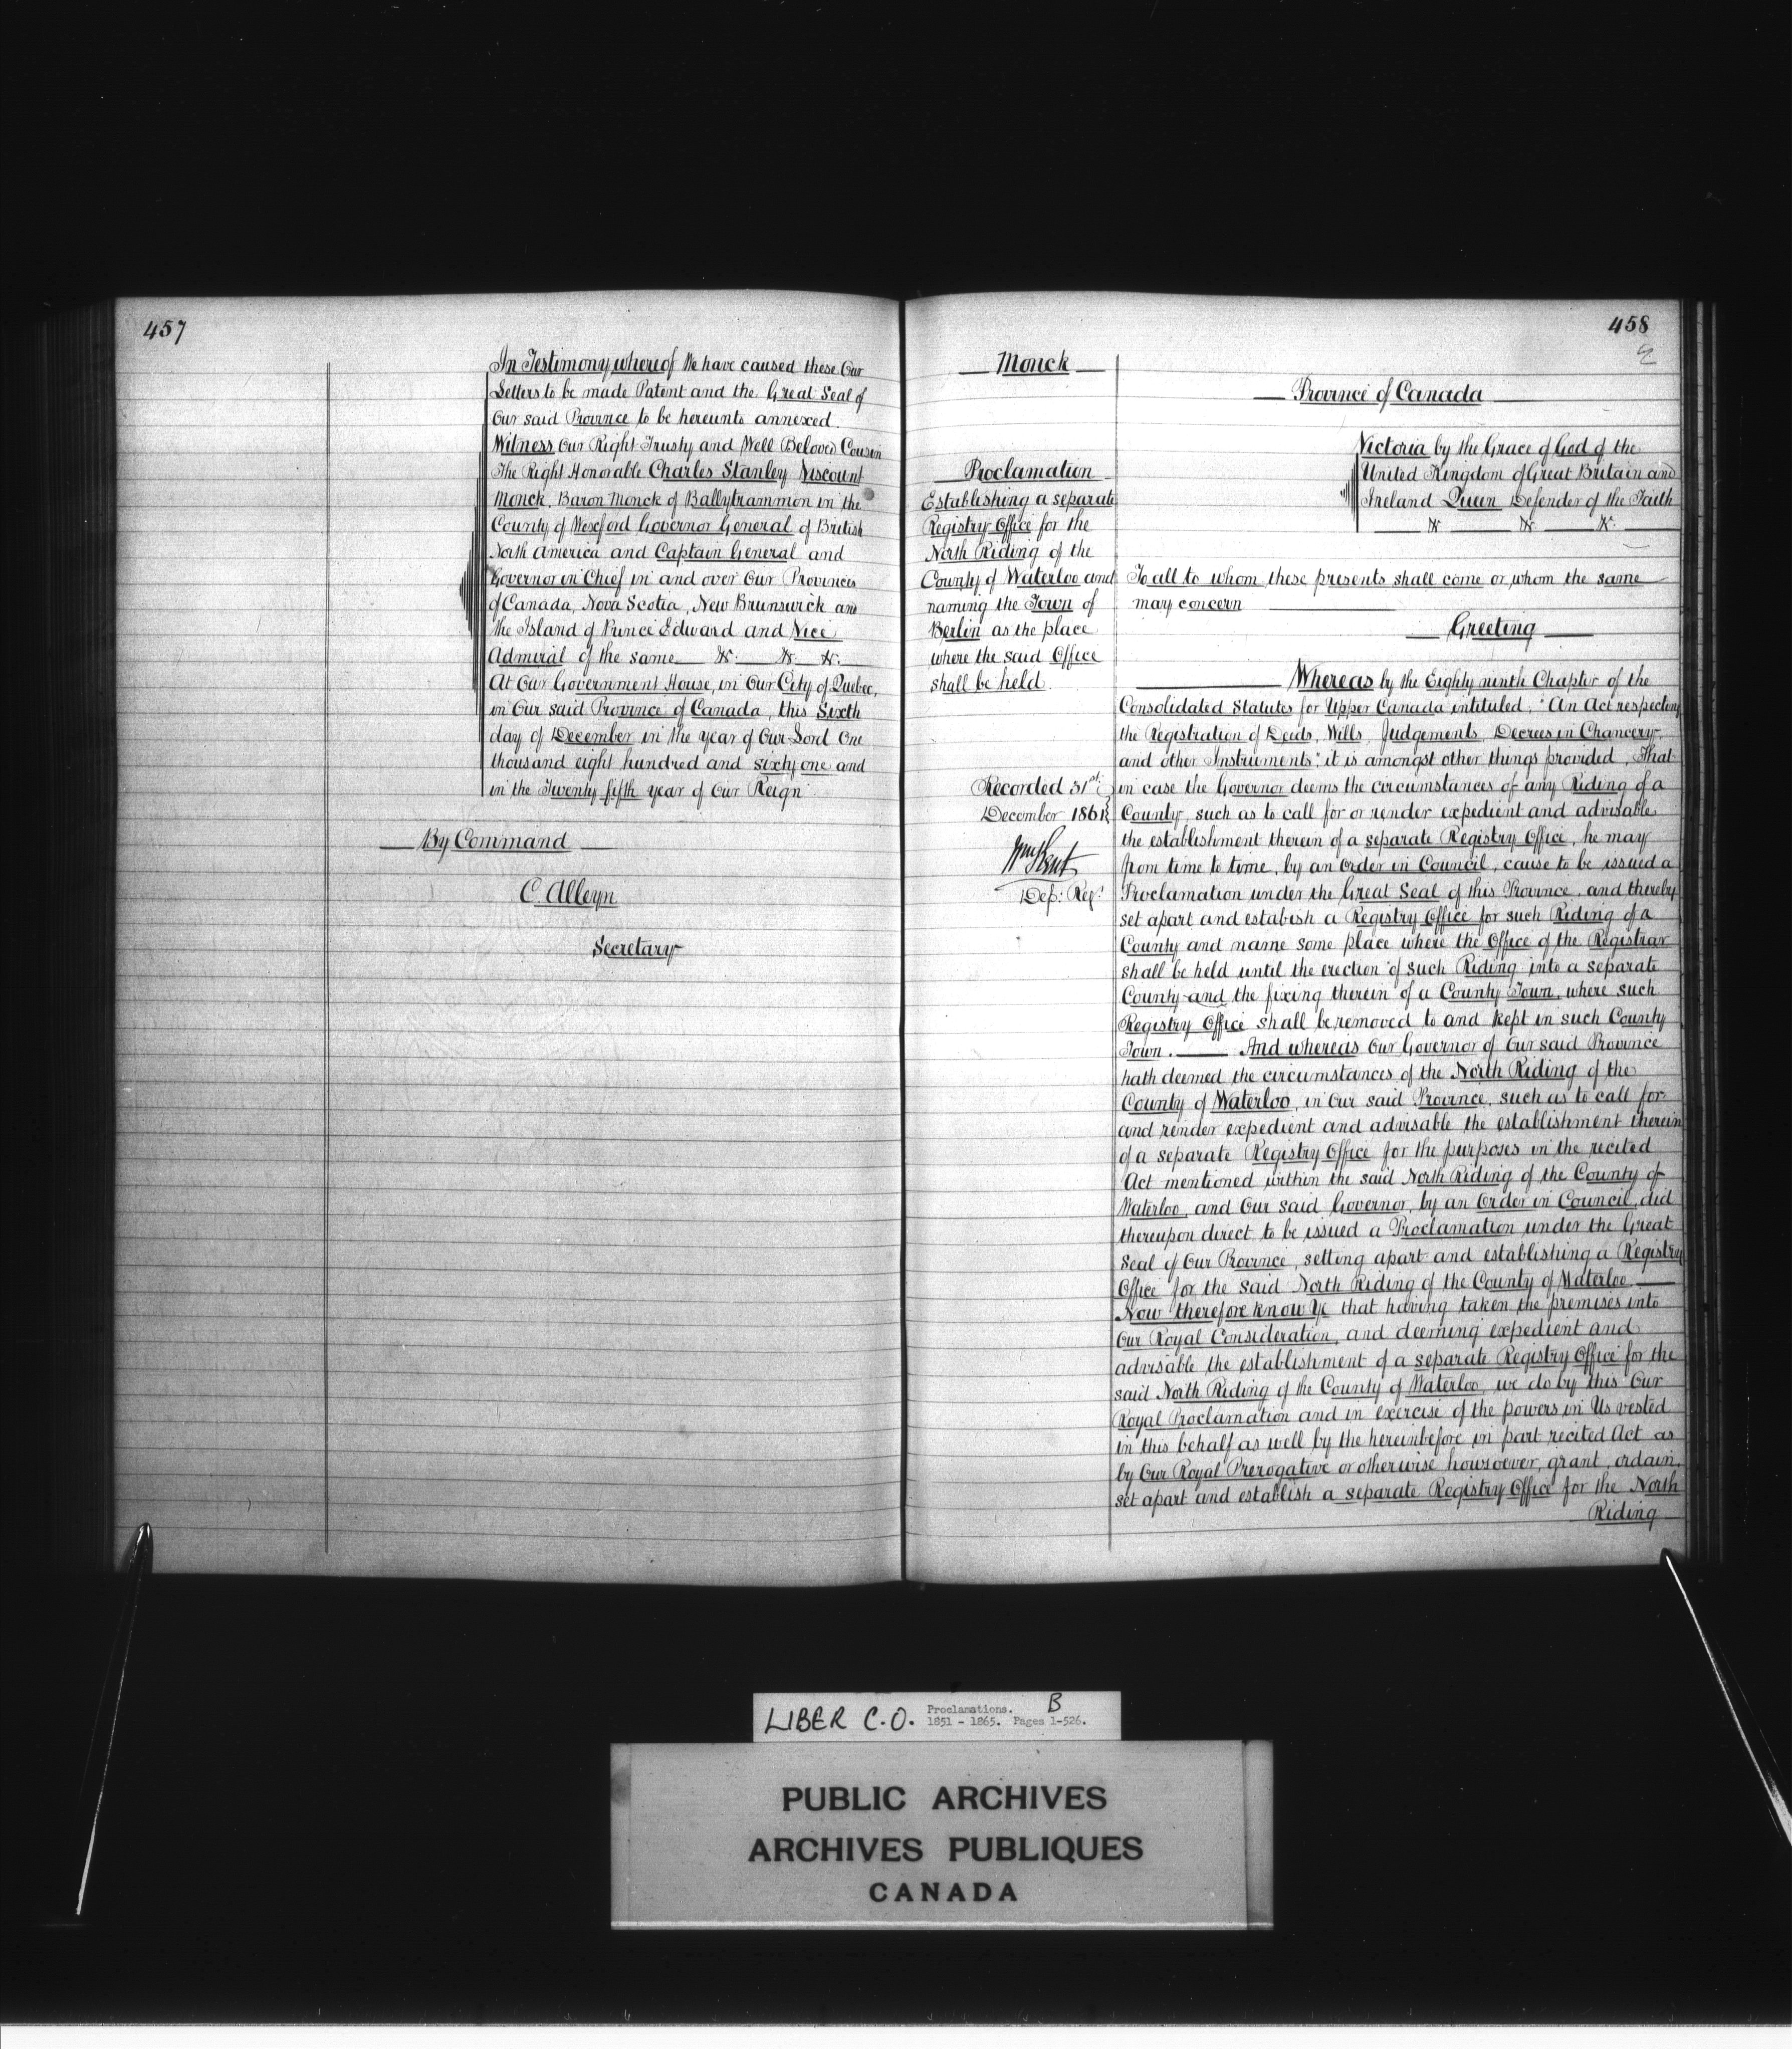 457
In Testimony whereof We have caused these Our
Letters to be made Patent and the Great Seal of
Our said Province to be hereunto annexed.
Witness Our Right Trusty and Well Beloved Cousin
The Right Honorable Charles Stanley Viscount
Monck, Baron Monck of Ballytrammon in the
County of Wexford Governor General of British
North America and Captain General and
Governor in Chief in and over Our Provinces
of Canada, Nova Scotia, New Brunswick and
the Island of Prince Edward and Vice
Admiral of the same &c. &c. &c.
At Our Government House, in Our City of Quebec,
in Our said Province of Canada, this Sixth
day of December in the year of Our Lord One
thousand eight hundred and sixty one and
in the Twenty fifth year of Our Reign
By Command
C. Alleyn
Secretary
458
Monck
Proclamation
Establishing a separate
Registry Office for the
North Riding of the
County of Waterloo and
naming the Town of
Berlin as the place
where the said Office
shall be held.
Recorded 31st
December 1861
Wm Kent
Dep: Regr
Province of Canada
Victoria by the Grace of God of the
United Kingdom of Great Britain and
Ireland Queen Defender of the Faith
&c &c &c.
To all to whom these presents shall come or whom the same
may concern
Greeting
Whereas by the Eighty ninth Chapter of the
Consolidated Statutes for Upper Canada intituled, "An Act respecting
the Registration of Deeds, Wills, Judgements, Decrees in Chancery
and other Instruments"; it is amongst other things provided, That
in case the Governor deems the circumstances of any Riding of a
County such as to call for or render expedient and advisable
the establishment therein of a separate Registry Office, he may
from time to time, by an Order in Council, cause to be issued a
Proclamation under the Great Seal of this Province, and thereby
set apart and estabish a Registry Office for such Riding of a
County and name some place where the Office of the Registrar
shall be held until the erection of such Riding into a separate
County and the fixing therein of a County Town, where such
Registry Office shall be removed to and kept in such County
Town. And whereas Our Governor of Our said Province
hath deemed the circumstances of the North Riding of the
County of Waterloo, in Our said Province, such as to call for
and render expedient and advisable the establishment therein
of a separate Registry Office for the purposes in the recited
Act mentioned within the said North Riding of the County of
Waterloo, and Our said Governor, by an Order in Council, did
thereupon direct to be issued a Proclamation under the Great
Seal of Our Province, setting apart and establishing a Registry
Office for the said North Riding of the County of Waterloo.
Now therefore know Ye that having taken the premises into
Our Royal Consideration, and deeming expedient and
advisable the establishment of a separate Registry Office for the
said North Riding of the County of Waterloo, we do by this Our
Royal Proclamation and in exercise of the powers in Us vested
in this behalf as well by the hereinbefore in part recited Act as
by Our Royal Prerogative or otherwise howsoever, grant, ordain,
set apart and establish a separate Registry Office for the North
Riding
LIBER C.O. Proclamations. B
1851 - 1865. Pages 1-526.
PUBLIC ARCHIVES
ARCHIVES PUBLIQUES
CANADA